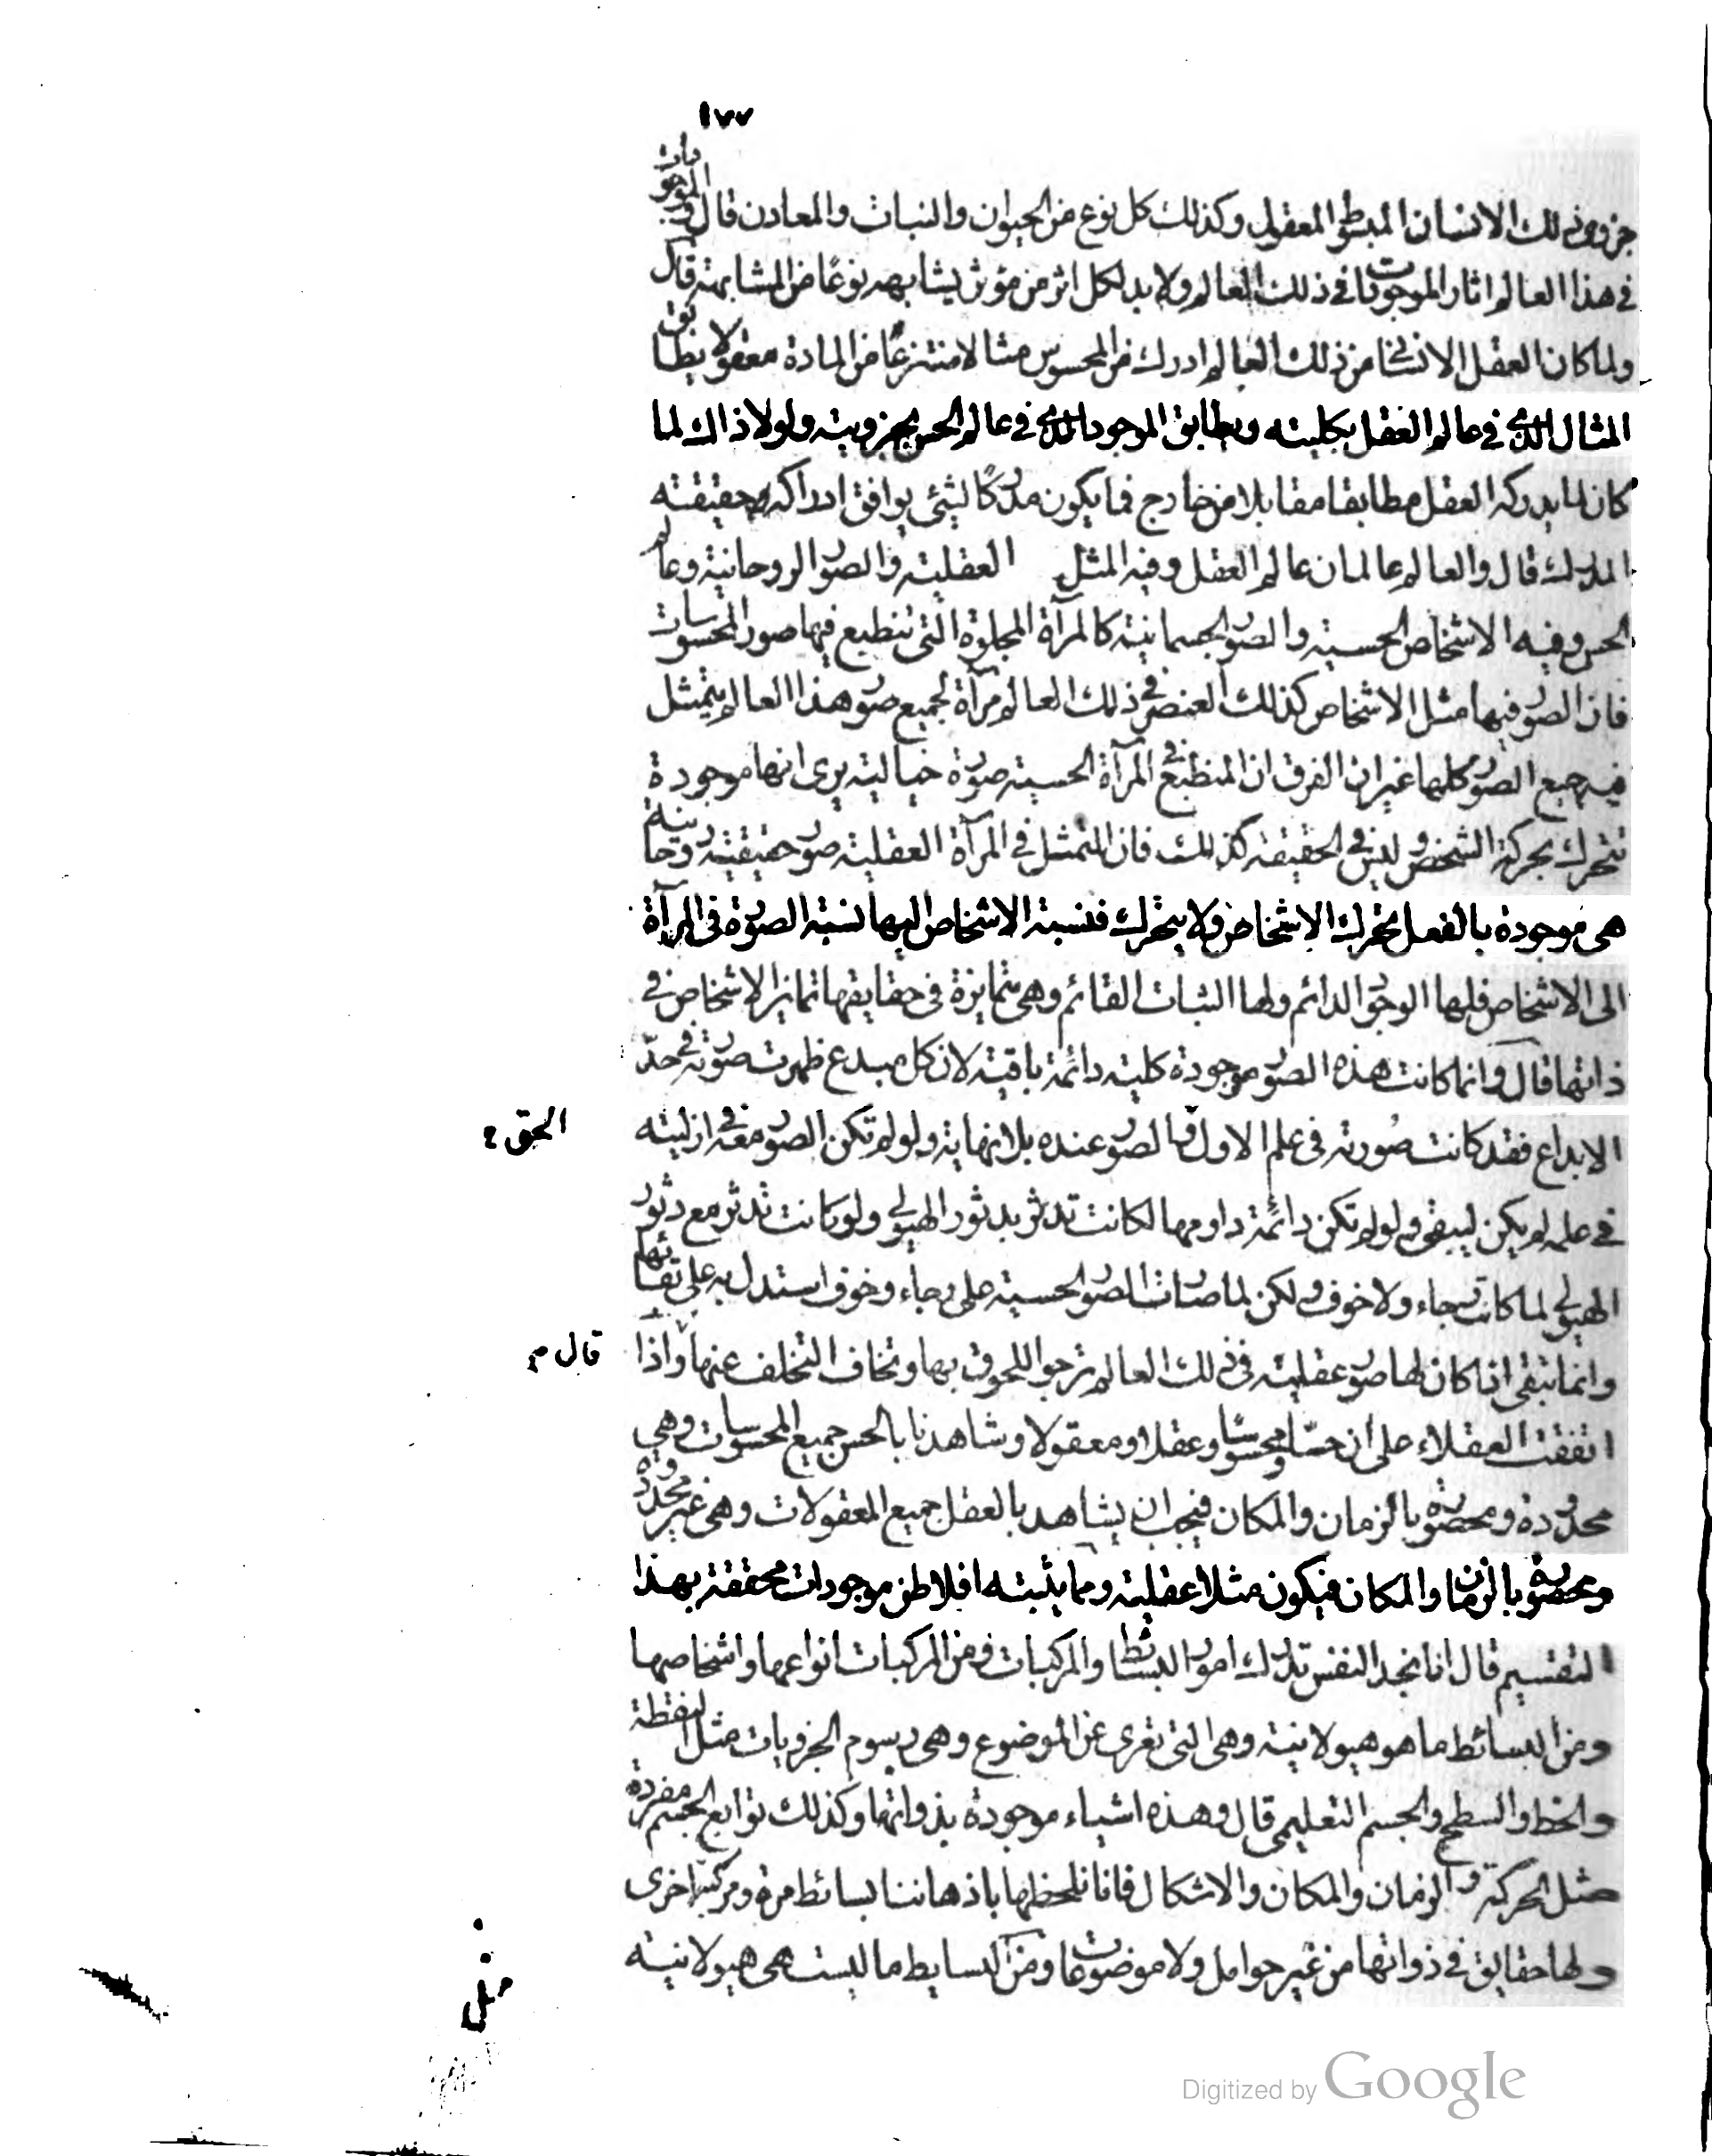 ١٧٧
جزوى ذلك الانسان المبسوط المعقول وكذلك كل نوع من الحيوان والنبات والمعادن قال والموجودات
فى هذا العالم اثار الموجودات فى ذلك العالم ولا بد لكل اثر من مؤثر يشابهه نوعًا من المشابهة قال
ولما كان العقل الانسانى من ذلك العالم ادرك من المحسوس مثالا منتزعًا من المادة معقولا يطابق
المثال الذى فى عالم العقل بكليته ويطابق الموجود الذى فى عالم الحس بجزويته ولولا ذلك لما
كان لما يدركه العقل مطابقا مقابلا من خارج فما يكون مدركًا لشئ يوافق ادراكه حقيقته
المدرك قال والعالم عالمان عالم العقل وفيه المثل العقلية والصور الروحانية وعالم
الحس وفيه الاشخاص الحسية والصور الجسمانية كالمرآة المجلوة التى تنطبع فيها صور المحسوسات
فان الصور فيها مثل الاشخاص كذلك العنصر فى ذلك العالم مرآة لجميع صور هذا العالم يتمثل
فيه جميع الصور كلها غير ان الفرق ان المنطبع فى المرآة الحسية صورة خيالية يرى انها موجودة
تتحرك بحركة الشخص وليس فى الحقيقة كذلك فان المتمثل فى المرآة العقلية صور حقيقية روحانية
هى موجودة بالفعل تحرك الاشخاص ولا يتحرك فنسبة الاشخاص اليها نسبة الصورة فى المرآة
الى الاشخاص فلها الوجود الدائم ولها الثبات القائم وهى متمايزة فى حقايقها تمايز الاشخاص فى
ذاتها قال وانما كانت هذه الصور موجودة كلية دائمة باقية لان كل مبدع ظهرت صورته فى حدّ
الابداع فقد كانت صورته فى علم الاول فالصور عنده بلا نهاية ولو لم تكن الصور معه فى ازليته
الحق
فى علمه لم يكن ليبقى ولو لم تكن دائمة دوامها لكانت تدثر بدثور الهيولى ولو كانت تدثر مع دثور
الهيولى لما كانت رجاء ولا خوف ولكن لما صارت الصور الحسية على رجاء وخوف استدل به على بقائها
وانما تبقى اذا كان لها صور عقلية فى ذلك العالم ترجوا اللحوق بها وتخاف التخلف عنها واذا
قال
اتفقت العقلاء على ان حسّا ومحسوسًا وعقلا ومعقولا وشاهدنا بالحس جميع المحسوسات وهى
محدودة ومحصورة بالزمان والمكان فيجب ان يشاهد بالعقل جميع المعقولات وهى غير محدودة
ومحصورة بالزمان والمكان فيكون مثلا عقلية ومما يثبته افلاطن موجودات محققة بهذا
التقسيم قال انا نجد النفس تدرك امور البسائط والمركبات ومن المركبات انواعها واشخاصها
ومن البسائط ما هو هيولانية وهى التى تعرى عن الموضوع وهى رسوم الجزويات مثل النقطة
والخط والسطح والجسم التعليمى قال وهذه اشياء موجودة بذواتها وكذلك توابع الجسم مفردة
مثل الحركة والزمان والمكان والاشكال فانا نلحظها باذهاننا بسائط مرة ومركبة اخرى
ولها حقايق فى ذواتها من غير حوامل ولا موضوعات ومن البسايط ما ليست هى هيولانية
مثل
Digitized by Google